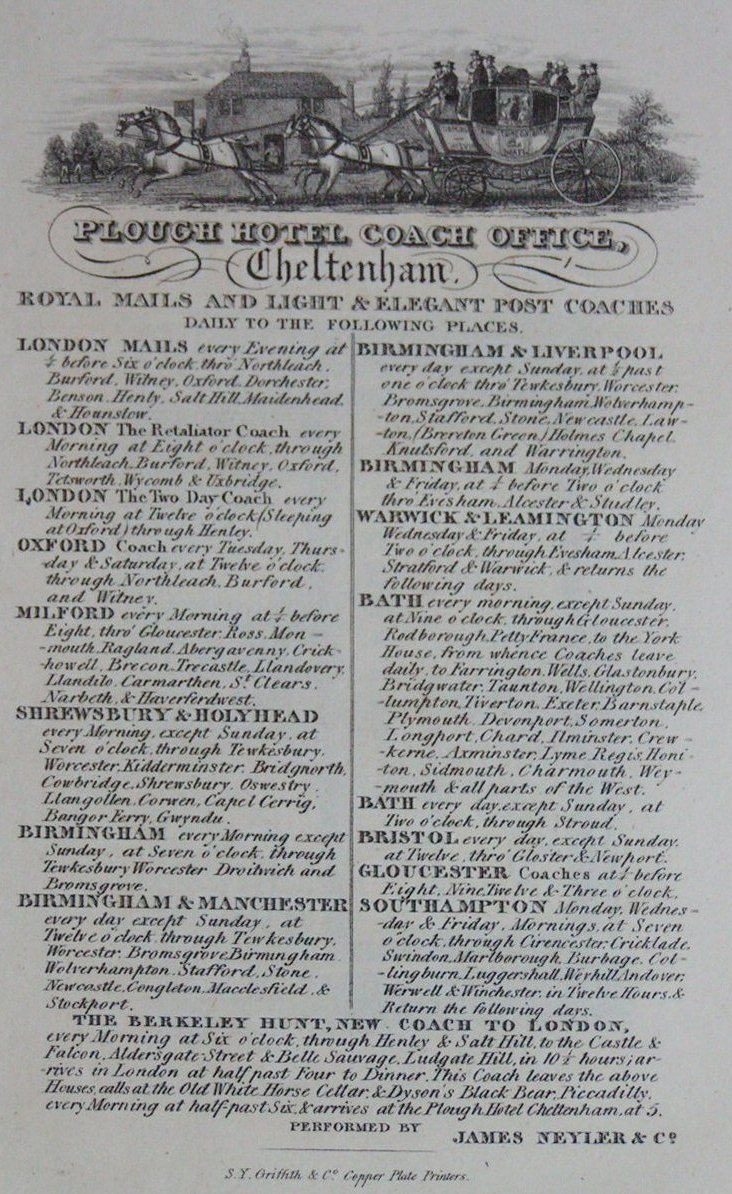 PLOUGH HOTEL COACH OFFICE,
Cheltenham.
ROYAL MAILS AND LIGHT & ELEGANT POST COACHES
DAILY TO THE FOLLOWING PLACES.
LONDON MAILS every Evening at
¼ before Six o'clock, thro' Northleach,
Burford, Witney, Oxford, Dorchester,
Benson, Henly, Salt Hill, Maidenhead,
& Hounslow.
LONDON The Retaliator Coach every
Morning at Eight o'clock, through
Northleach, Burford, Witney, Oxford,
Tetsworth, Wycomb & Uxbridge.
LONDON The Two Day Coach every
Morning at Twelve o'clock (Sleeping
at Oxford) through Henley.
OXFORD Coach every Tuesday, Thurs-
-day & Saturday, at Twelve o'clock,
through Northleach, Burford,
and Witney.
MILFORD every Morning at ¼ before
Eight, thro' Gloucester, Ross, Mon-
-mouth, Ragland, Abergavenny, Crick-
-howell, Brecon, Trecastle, Llandovery,
Llandilo, Carmarthen, St Clears,
Narbeth, & Haverferdwest.
SHREWSBURY & HOLYHEAD
every Morning, except Sunday, at
Seven o'clock, through Tewkesbury,
Worcester, Kidderminster, Bridgnorth,
Cowbridge, Shrewsbury, Oswestry,
Llangollen, Corwen, Capel Cerrig,
Bangor Ferry, Gwyndu.
BIRMINGHAM every Morning except
Sunday, at Seven o'clock, through
Tewkesbury Worcester Droitwich and
Bromsgrove.
BIRMINGHAM & MANCHESTER
every day except Sunday, at
Twelve o'clock, through Tewkesbury,
Worcester, Bromsgrove, Birmingham,
Wolverhampton, Stafford, Stone,
Newcastle, Congleton, Macclesfield, &
Stockport.
BIRMINGHAM & LIVERPOOL
every day except Sunday, at ½ past
one o'clock thro' Tewkesbury, Worcester,
Bromsgrove, Birmingham, Wolverhamp-
-ton, Stafford, Stone, Newcastle, Law-
-ton, (Brereton Green,) Holmes Chapel,
Knutsford, and Warrington.
BIRMINGHAM Monday, Wednesday
& Friday, at ¼ before Two o'clock
thro' Evisham, Alcester & Studley.
WARWICK & LEAMINGTON Monday
Wednesday & Friday, at ¼ before
Two o'clock, through Evesham, Alcester,
Stratford & Warwick, & returns the
following days.
BATH every morning, except Sunday,
at Nine o'clock, through Gloucester,
Rodborough, Petty France, to the York
House, from whence Coaches leave
daily, to Farrington, Wells, Glastonbury,
Bridgwater, Taunton, Wellington, Col-
-lumpton, Tiverton, Exeter, Barnstaple,
Plymouth, Devonport, Somerton,
Longport, Chard, Ilminster, Crew-
-kerne, Axminster, Lyme Regis, Honi-
-ton, Sidmouth, Charmouth, Wey-
-mouth & all parts of the West.
BATH every day, except Sunday, at
Two o'clock, through Stroud.
BRISTOL every day, except Sunday,
at Twelve, thro' Gloster & Newport.
GLOUCESTER Coaches at ¼ before
Eight, Nine, Twelve & Three o'clock.
SOUTHAMPTON Monday, Wednes-
-day & Friday, Mornings, at Seven
o'clock, through Cirencester, Cricklade,
Swindon, Marlborough, Burbage, Col-
-lingburn, Luggershall, Weyhill, Andover,
Werwell & Winchester, in Twelve Hours, &
Return the following days.
THE BERKELEY HUNT, NEW COACH TO LONDON,
every Morning at Six o'clock, through Henley & Salt Hill, to the Castle &
Falcon, Aldersgate Street & Belle Sauvage, Ludgate Hill, in 10½ hours; ar-
-rives in London at half past Four to Dinner. This Coach leaves the above
Houses, calls at the Old White Horse Cellar, & Dyson's Black Bear, Piccadilly,
every Morning at half past Six, & arrives at the Plough Hotel Cheltenham, at 5.
PERFORMED BY
JAMES NEYLER & Co
S.Y. Griffith & Co Copper Plate Printers.